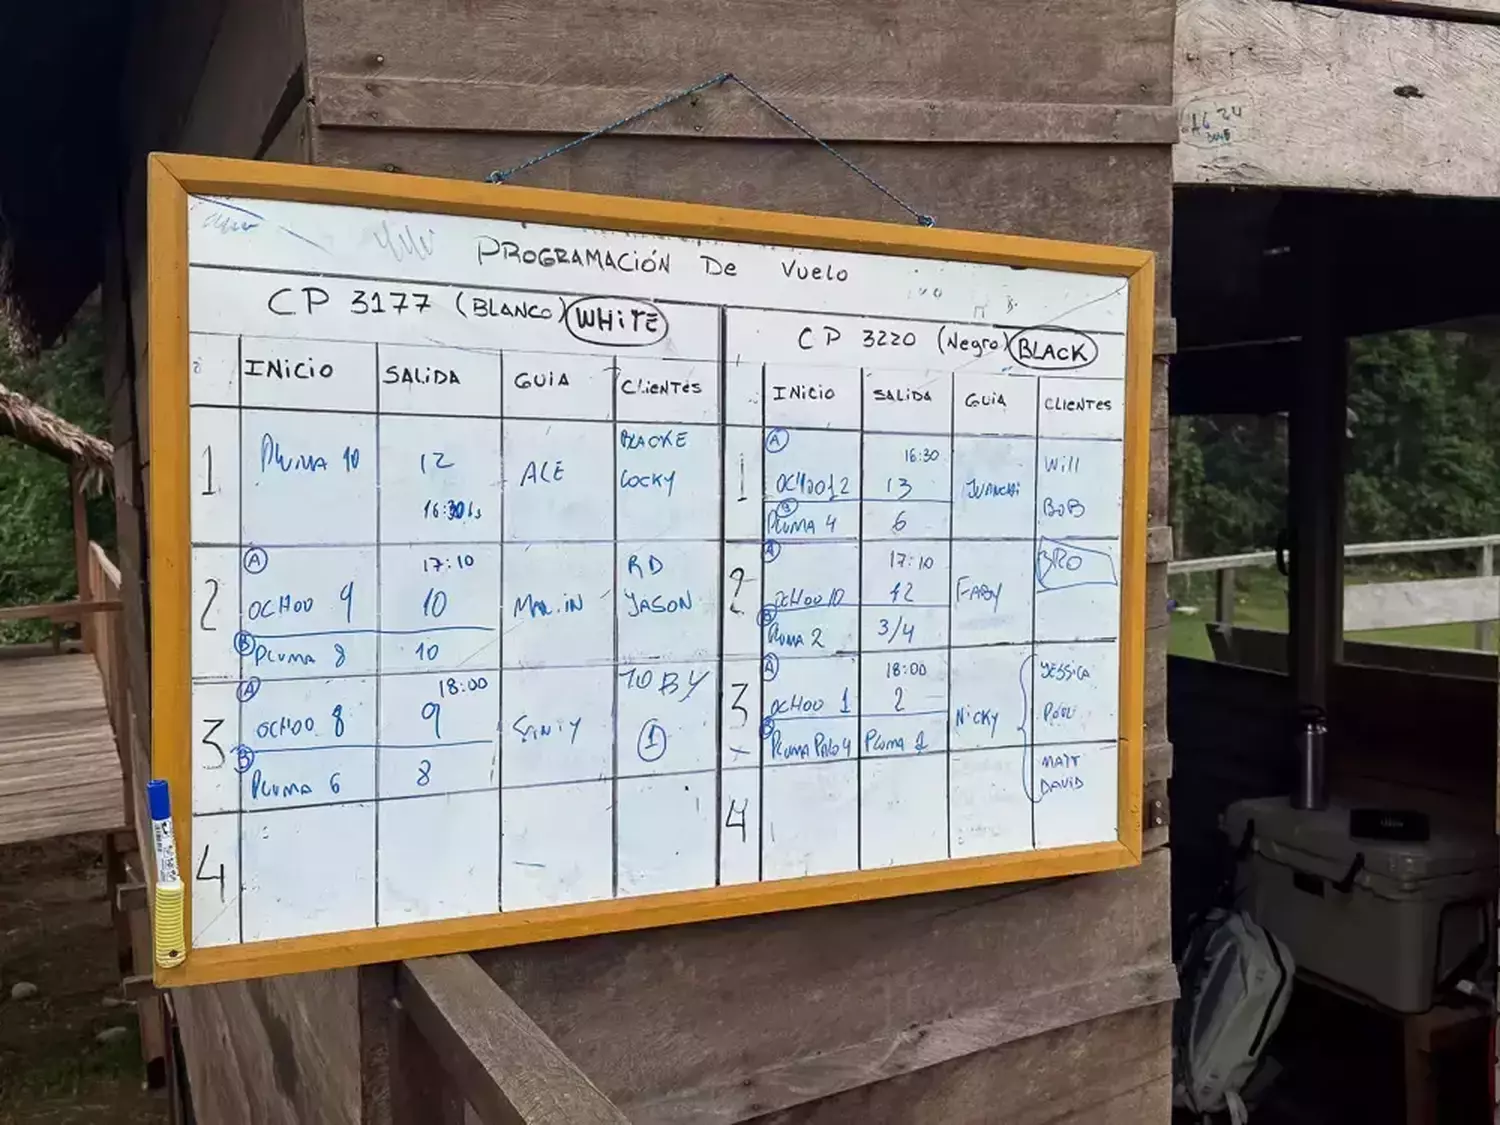 PROGRAMACIÓN De Vuelo
CP 3177 (BLANCO) WHITE
INICIO SALIDA GUIA CLIENTES
1 PLUMA 10 12 16:30 ALE BLACKE LOCKY
2 A 17:10 RD
OCHOO 9 10 MARLIN JASON
B PLUMA 8 10
3 A 18:00 TOBY
OCHOO 8 9 1
B PLUMA 6 8
4
CP 3220 (Negro) BLACK
INICIO SALIDA GUIA CLIENTES
1 A 16:30 Will
OCHOO 12 13 JUANCHI BOB
PLUMA 4 6
2 A 17:10 BRO
OCHOO 10 12 FABY
B PLUMA 2 3/4
3 A 18:00 JESSICA
OCHOO 1 2 NICKY
B PLUMA PALO 4 PLUMA 1 MATT
DAVID
4